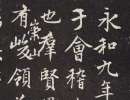 永和九年
于會稽
也羣賢
有崇山峻領